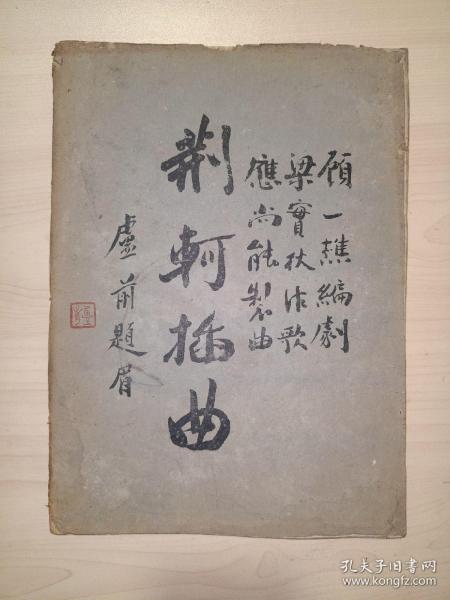 顾一樵編劇
梁實秋作歌
應尚能製曲
荆軻插曲
盧前題眉
孔夫子旧书网
www.kongfz.com